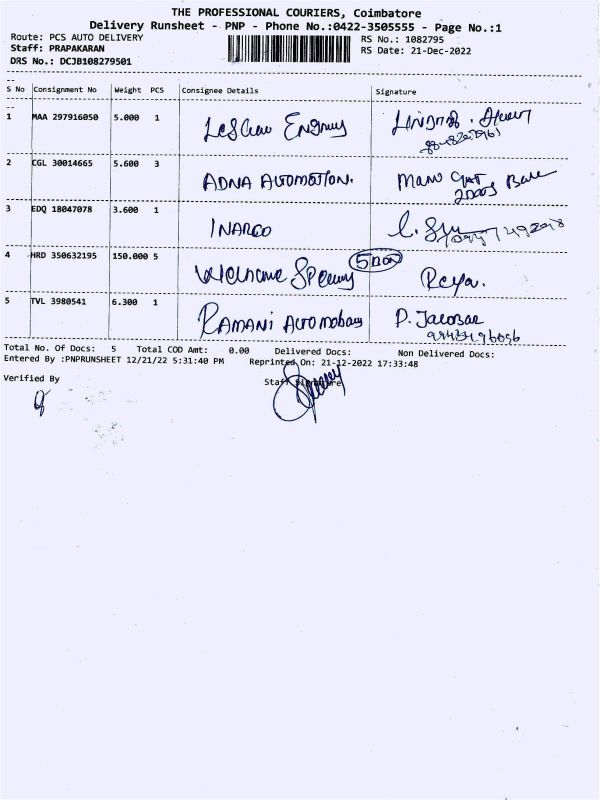 THE PROFESSIONAL COURIERS, Coimbatore
Delivery Runsheet - PNP - Phone No.:0422-3505555 - Page No.:1
Route: PCS AUTO DELIVERY RS No.: 1082795
Staff: PRAPAKARAN RS Date: 21-Dec-2022
DRS No.: DCJB108279501
S No Consignment No Weight PCS Consignee Details Signature
1 MAA 297916050 5.000 1
2 CGL 30014665 5.600 3 ADNA AUTOMATION.
3 EDQ 18047078 3.600 1 INARCO
4 HRD 350632195 150.000 5 Welcome 5 Box
5 TVL 3980541 6.300 1 RAMANI P.
Total No. Of Docs: 5 Total COD Amt: 0.00 Delivered Docs: Non Delivered Docs:
Entered By :PNPRUNSHEET 12/21/22 5:31:40 PM Reprinted On: 21-12-2022 17:33:48
Verified By Staff Signature